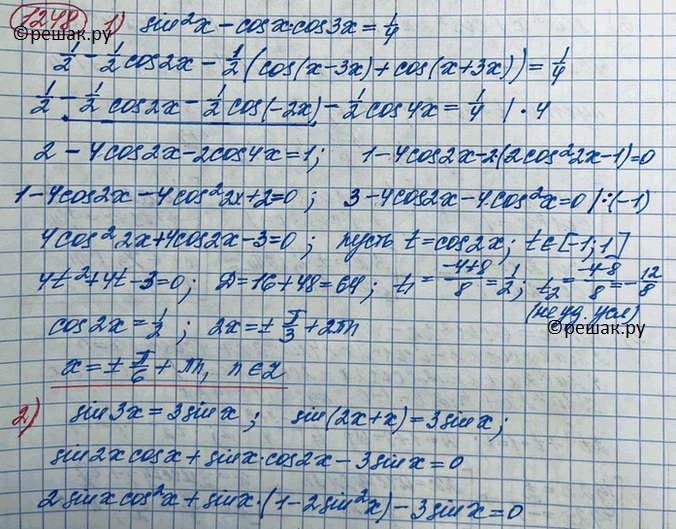 1248 1) sin²x - cosx·cos3x = 1/4
©решак.ру
1/2 - 1/2 cos2x - 1/2 (cos(x-3x) + cos(x+3x)) = 1/4
1/2 - 1/2 cos2x - 1/2 cos(-2x) - 1/2 cos4x = 1/4 | · 4
2 - 4cos2x - 2cos4x = 1; 1 - 4cos2x - 2·(2cos²2x - 1) = 0
1 - 4cos2x - 4cos²2x + 2 = 0; 3 - 4cos2x - 4·cos²x = 0 | : (-1)
4cos²2x + 4cos2x - 3 = 0; пусть t = cos2x; t ∈ [-1; 1]
4t² + 4t - 3 = 0; D = 16 + 48 = 64; t₁ = (-4+8)/8 = 1/2; t₂ = (-4-8)/8 = -12/8
(не уд. усл)
cos2x = 1/2; 2x = ± π/3 + 2πn
©решак.ру
x = ± π/6 + πn, n ∈ z
2) sin3x = 3sinx; sin(2x+x) = 3sinx;
sin2x cosx + sinx·cos2x - 3sinx = 0
2sinx cos²x + sinx·(1 - 2sin²x) - 3sinx = 0